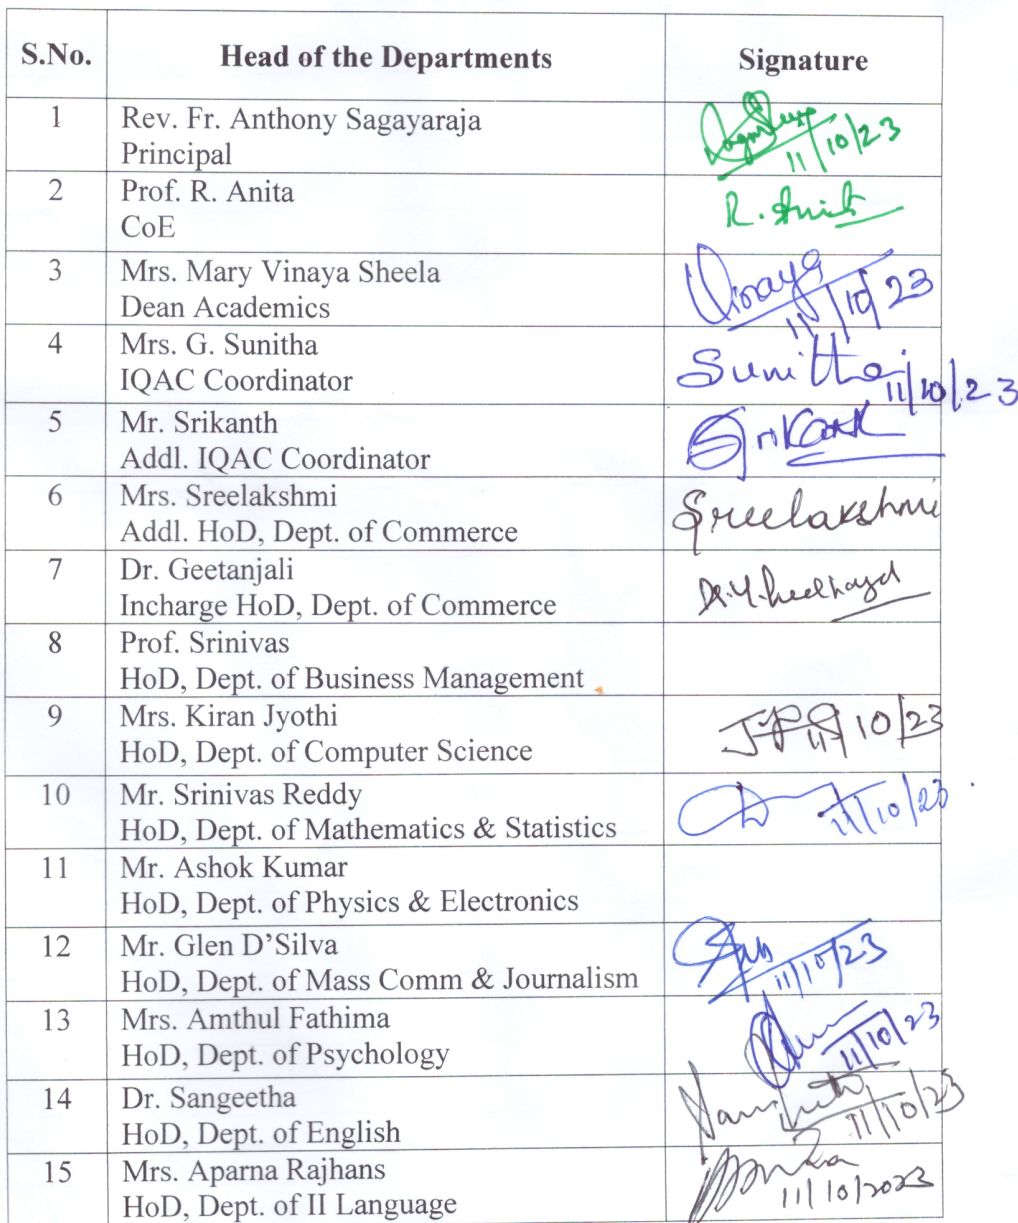 S.No. Head of the Departments Signature
1 Rev. Fr. Anthony Sagayaraja
Principal
11/10/23
2 Prof. R. Anita
CoE
R. Anita
3 Mrs. Mary Vinaya Sheela
Dean Academics
Vinaya
11/10/23
4 Mrs. G. Sunitha
IQAC Coordinator
Sunitha
11/10/23
5 Mr. Srikanth
Addl. IQAC Coordinator
Srikanth
6 Mrs. Sreelakshmi
Addl. HoD, Dept. of Commerce
Sreelakshmi
7 Dr. Geetanjali
Incharge HoD, Dept. of Commerce
8 Prof. Srinivas
HoD, Dept. of Business Management
9 Mrs. Kiran Jyothi
HoD, Dept. of Computer Science
11/10/23
10 Mr. Srinivas Reddy
HoD, Dept. of Mathematics & Statistics
11/10/23
11 Mr. Ashok Kumar
HoD, Dept. of Physics & Electronics
12 Mr. Glen D’Silva
HoD, Dept. of Mass Comm & Journalism
11/10/23
13 Mrs. Amthul Fathima
HoD, Dept. of Psychology
11/10/23
14 Dr. Sangeetha
HoD, Dept. of English
11/10/23
15 Mrs. Aparna Rajhans
HoD, Dept. of II Language
11/10/2023